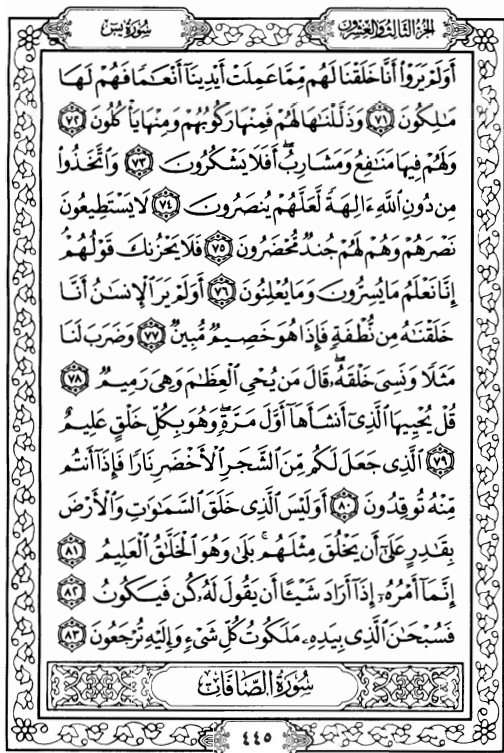 الجزء الثالث والعشرون
سورة يس
أَوَلَمْ يَرَوْا۟ أَنَّا خَلَقْنَا لَهُم مِّمَّا عَمِلَتْ أَيْدِينَآ أَنْعَـٰمًا فَهُمْ لَهَا
مَـٰلِكُونَ ٧١ وَذَلَّلْنَـٰهَا لَهُمْ فَمِنْهَا رَكُوبُهُمْ وَمِنْهَا يَأْكُلُونَ ٧٢
وَلَهُمْ فِيهَا مَنَـٰفِعُ وَمَشَارِبُ ۖ أَفَلَا يَشْكُرُونَ ٧٣ وَٱتَّخَذُوا۟
مِن دُونِ ٱللَّهِ ءَالِهَةً لَّعَلَّهُمْ يُنصَرُونَ ٧٤ لَا يَسْتَطِيعُونَ
نَصْرَهُمْ وَهُمْ لَهُمْ جُندٌ مُّحْضَرُونَ ٧٥ فَلَا يَحْزُنكَ قَوْلُهُمْ ۘ
إِنَّا نَعْلَمُ مَا يُسِرُّونَ وَمَا يُعْلِنُونَ ٧٦ أَوَلَمْ يَرَ ٱلْإِنسَـٰنُ أَنَّا
خَلَقْنَـٰهُ مِن نُّطْفَةٍ فَإِذَا هُوَ خَصِيمٌ مُّبِينٌ ٧٧ وَضَرَبَ لَنَا
مَثَلًا وَنَسِىَ خَلْقَهُۥ ۖ قَالَ مَن يُحْىِ ٱلْعِظَـٰمَ وَهِىَ رَمِيمٌ ٧٨
قُلْ يُحْيِيهَا ٱلَّذِىٓ أَنشَأَهَآ أَوَّلَ مَرَّةٍ ۖ وَهُوَ بِكُلِّ خَلْقٍ عَلِيمٌ
٧٩ ٱلَّذِى جَعَلَ لَكُم مِّنَ ٱلشَّجَرِ ٱلْأَخْضَرِ نَارًا فَإِذَآ أَنتُم
مِّنْهُ تُوقِدُونَ ٨٠ أَوَلَيْسَ ٱلَّذِى خَلَقَ ٱلسَّمَـٰوَٰتِ وَٱلْأَرْضَ
بِقَـٰدِرٍ عَلَىٰٓ أَن يَخْلُقَ مِثْلَهُم ۚ بَلَىٰ وَهُوَ ٱلْخَلَّـٰقُ ٱلْعَلِيمُ ٨١
إِنَّمَآ أَمْرُهُۥٓ إِذَآ أَرَادَ شَيْـًٔا أَن يَقُولَ لَهُۥ كُن فَيَكُونُ ٨٢
فَسُبْحَـٰنَ ٱلَّذِى بِيَدِهِۦ مَلَكُوتُ كُلِّ شَىْءٍ وَإِلَيْهِ تُرْجَعُونَ ٨٣
سُورَةُ الصَّافَّاتِ
٤٤٥